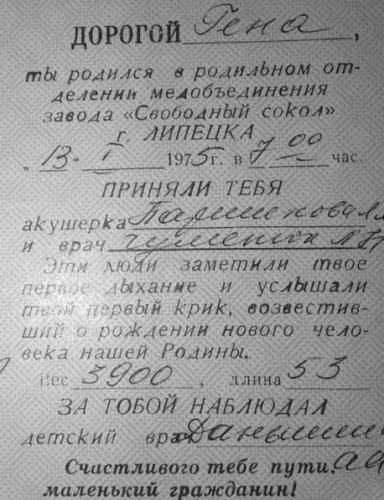 ДОРОГОЙ Гена,
ты родился в родильном от-
делении медобъединения
завода «Свободный сокол»
г. ЛИПЕЦКА
„13" I 1975г. в 7 00 час
ПРИНЯЛИ ТЕБЯ
акушерка
и врач
Эти люди заметили твое
первое дыхание и услышали
твой первый крик, возвестив-
ший о рождении нового чело-
века нашей Родины.
Вес 3900, длина 53
ЗА ТОБОЙ НАБЛЮДАЛ
детский врач
Счастливого тебе пути,
маленький гражданин!